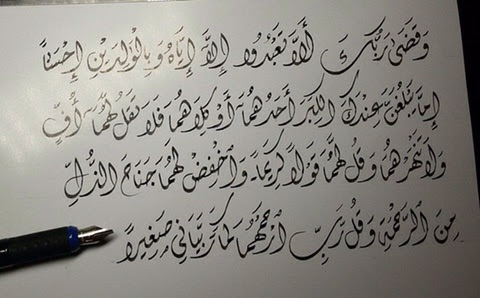 وَقَضَىٰ رَبُّكَ أَلَّا تَعْبُدُوا إِلَّا إِيَّاهُ وَبِالْوَالِدَيْنِ إِحْسَانًا
إِمَّا يَبْلُغَنَّ عِنْدَكَ الْكِبَرَ أَحَدُهُمَا أَوْ كِلَاهُمَا فَلَا تَقُلْ لَهُمَا أُفٍّ
وَلَا تَنْهَرْهُمَا وَقُلْ لَهُمَا قَوْلًا كَرِيمًا وَاخْفِضْ لَهُمَا جَنَاحَ الذُّلِّ
مِنَ الرَّحْمَةِ وَقُلْ رَبِّ ارْحَمْهُمَا كَمَا رَبَّيَانِي صَغِيرًا